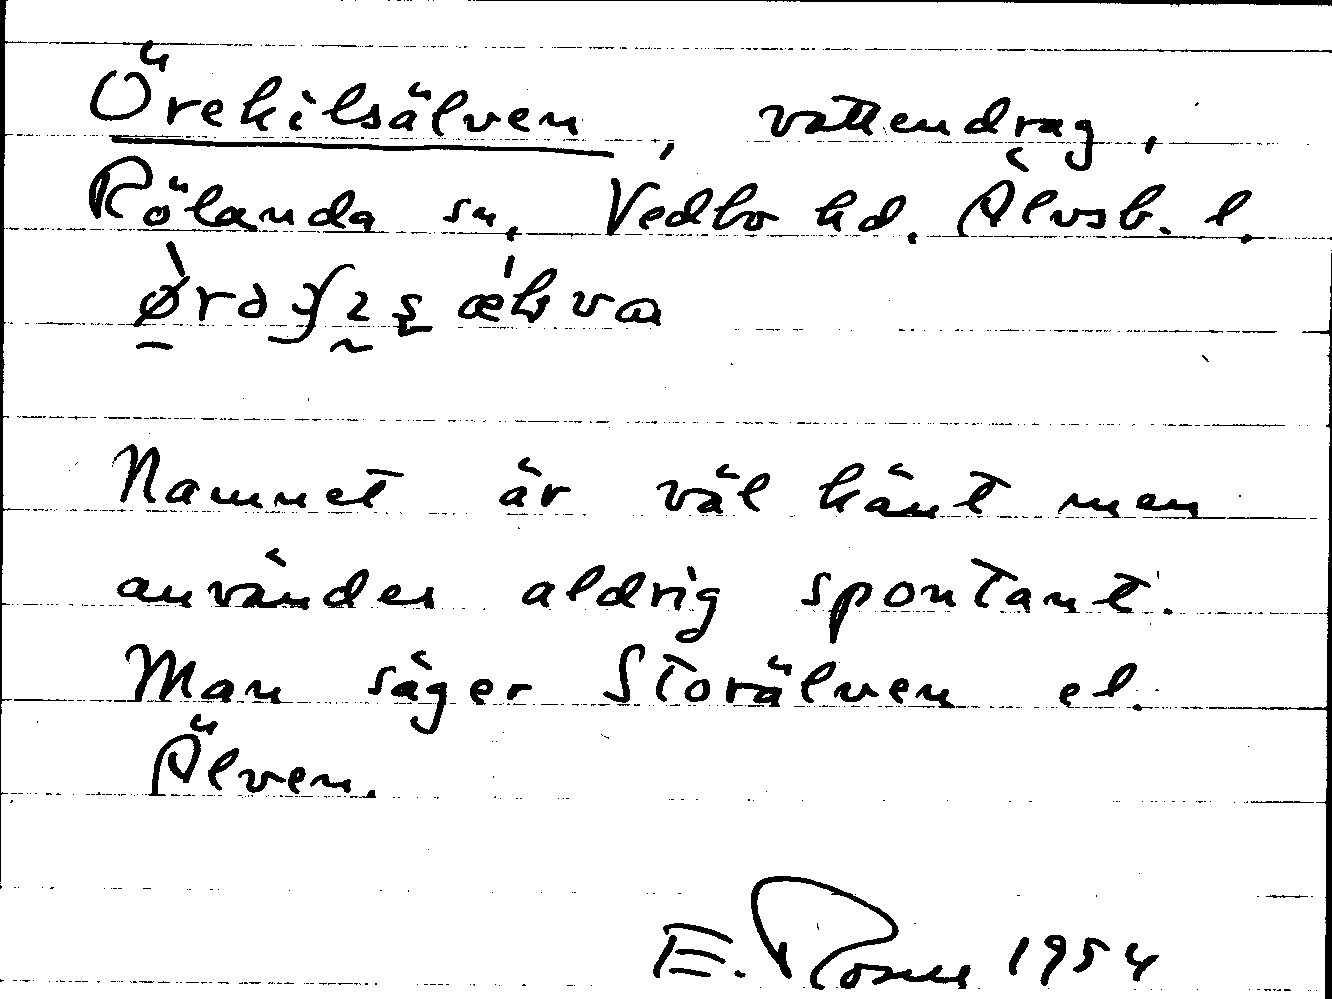 Örekilsälven, vattendrag,
Rölanda sn, Vedbo hd. Älvsb. l.
Namnet är väl känt men
användes aldrig spontant.
Man säger Storälven el.
Älven.
E. 1954